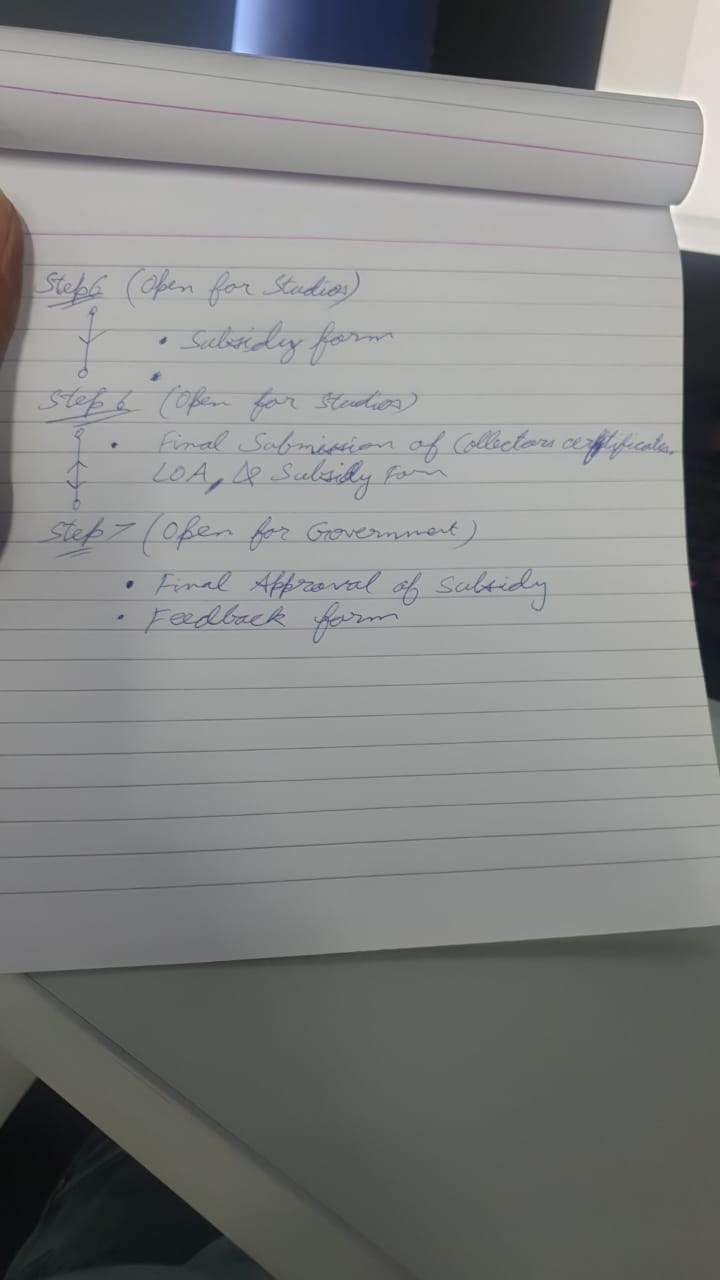 Step 6 (Open for Studios)
• Subsidiy form
•
Step 6 (Open for Studios)
• Final Submission of Collectors certificates,
LOA, & Subsidy Form
Step 7 (Open for Government)
• Final Approval of Subsidy
• Feedback form